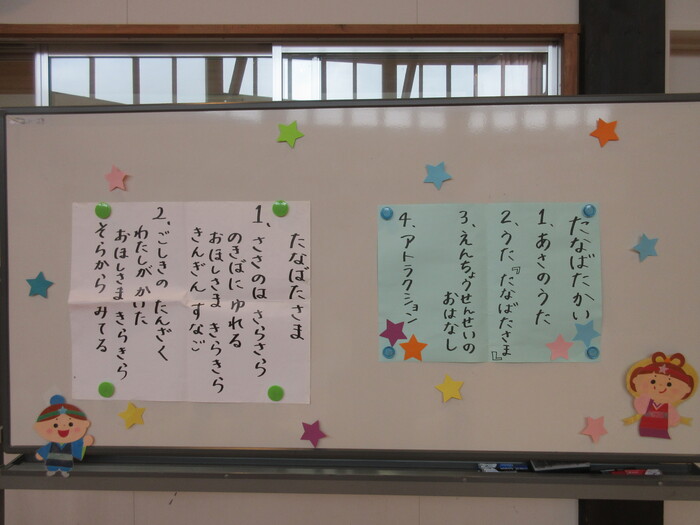 たなばたかい
1、あさのうた
2、うた『たなばたさま』
3、えんちょうせんせいの
おはなし
4、アトラクション
たなばたさま
1、ささのは さらさら
のきばに ゆれる
おほしさま きらきら
きんぎん すなご
2、ごしきの たんざく
わたしが かいた
おほしさま きらきら
そらから みてる